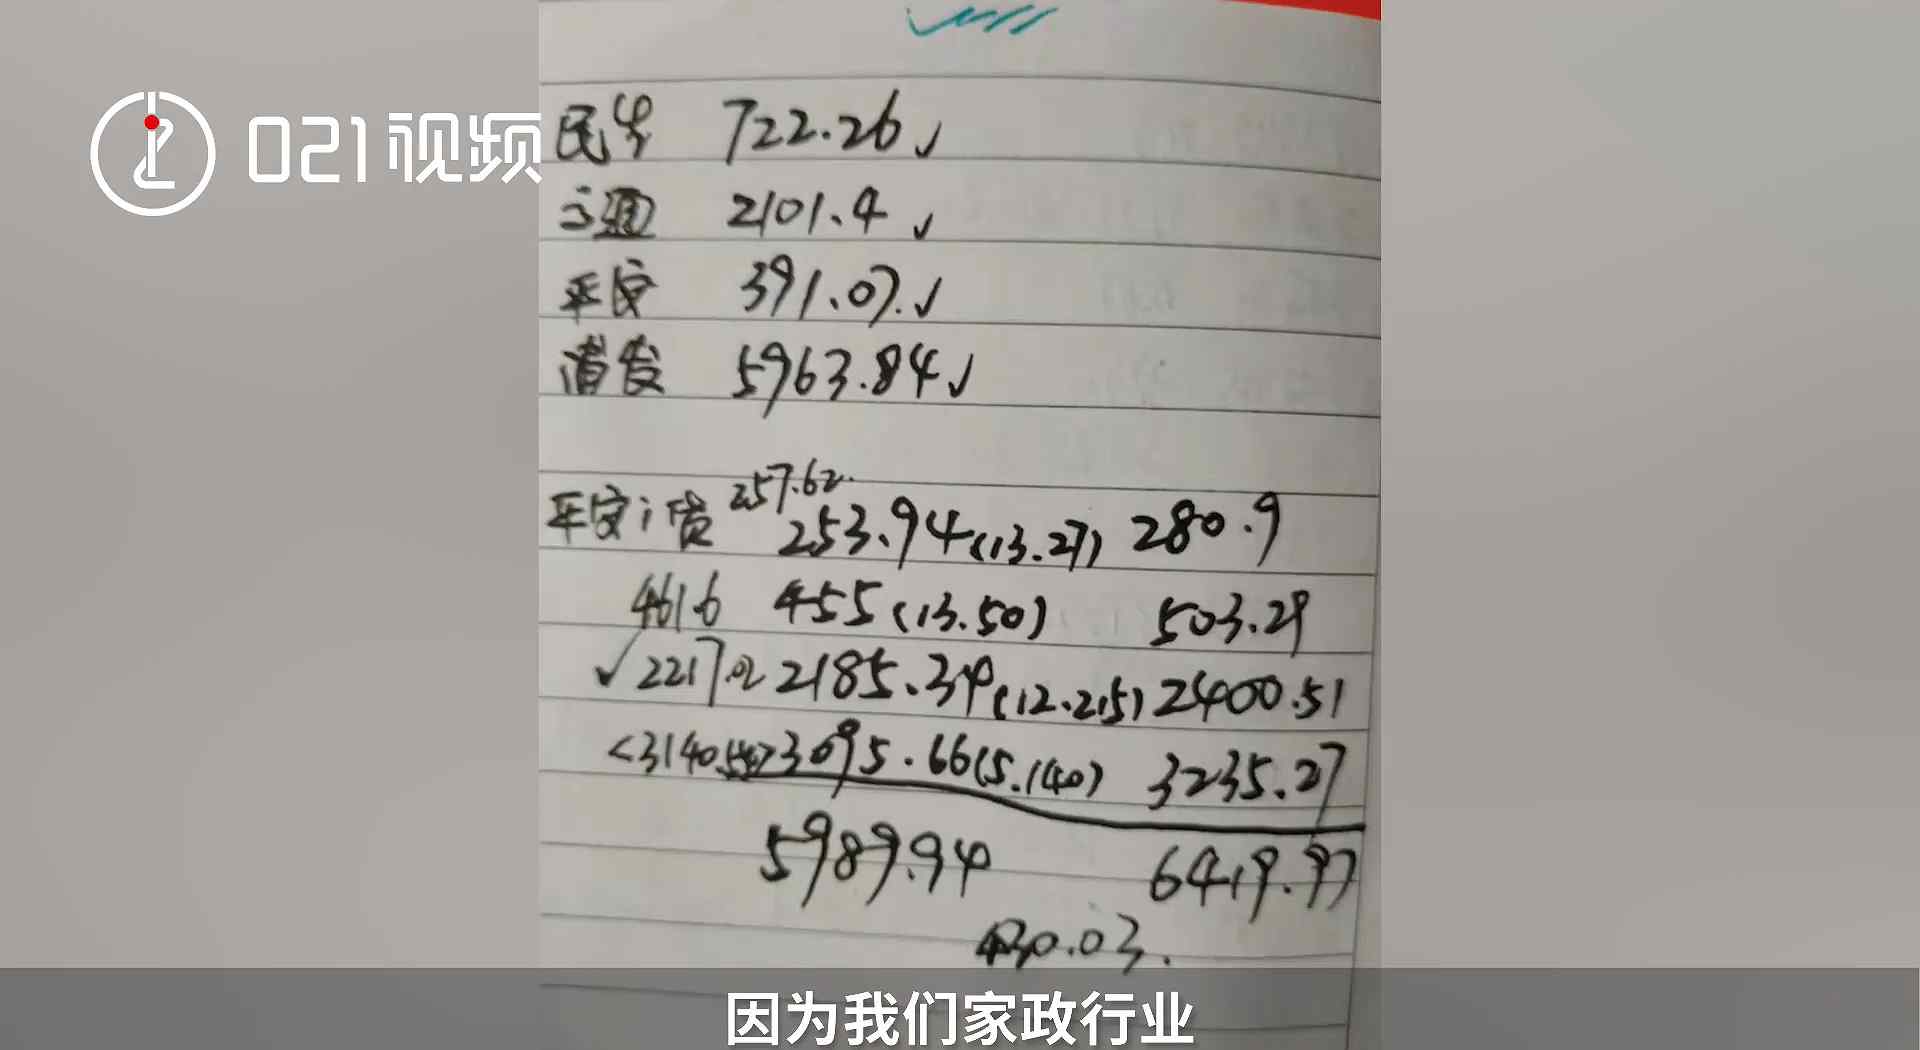 021视频
民生 722.26✓
交通 2101.4 ✓
平安 391.07.✓
浦发 5963.84✓
257.62.
平安i贷 253.94(13.27) 280.9
461.6 455(13.50) 503.29
✓2217.02 2185.34(12.215) 2400.51
<3140.54>3095.66(5.140) 3235.27
5989.94 6419.97
430.03.
因为我们家政行业